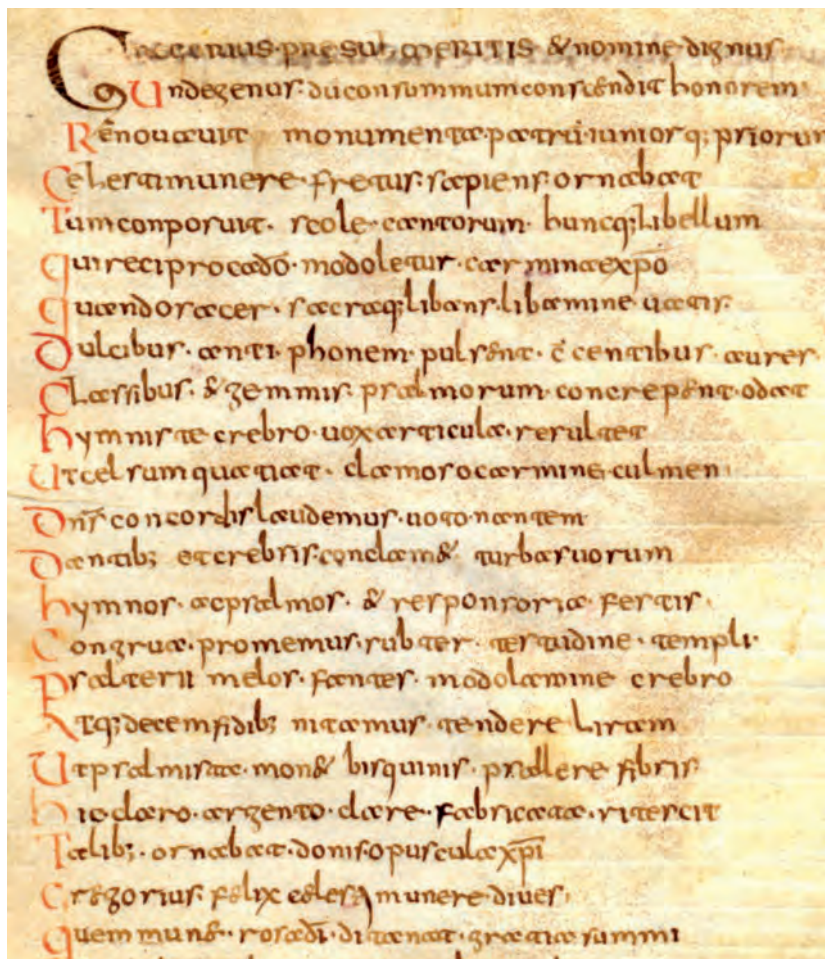 GREGORIUS·PRESUL MERITIS & nomine dignus·
Undegenus· dūconsummumconscendit honorem·
Rēnouauit monumenta·patrū·iuniorq; priorum
Celestimunere· fretus· sapiens· ornabat
Tumconposuit· scole· cantorum· huncq; libellum
quireciprocadō· modoletur· carminaexpō
quandosacer· sacraq; libans· libamine uatis·
Dulcibus· anti phonem· pulsent· ccentibus· aures
Classibus· & gemmis· psalmorum· concrepent· odat
hymniste crebro· uoxarticula· resultet
Utcelsumquatiat· clamosocarmine· culmen·
Dn̄sconcordislaudemus· uoto· nantem
Dantib; etcrebris·conclam& turbasuorum
hymnos· acpsalmos· & responsoria· fertis·
Congrua· promemus· subter· testudine· templi·
Psalterii melos· fantes· modolamine crebro
Atq; decemfidib; nitamus· tendere liram
Utpsalmista· mon& bisquinis· psallere fibris·
hicclaro· argento· clare· fabricata· nitescit
Talib;· ornabat· donis·opusculaxp̄i
Gregorius· felix celesti munere·diues·
quem mun&·· rosadī· ditanat· gratia summi